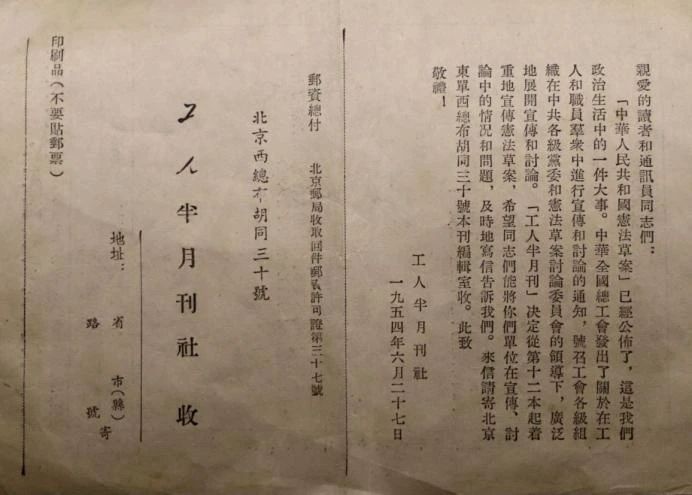 親愛的讀者和通訊員同志們：
「中華人民共和國憲法草案」已經公佈了，這是我們
政治生活中的一件大事。中華全國總工會發出了關於在工
人和職員羣衆中進行宣傳和討論的通知，號召工會各級組
織在中共各級黨委和憲法草案討論委員會的領導下，廣泛
地展開宣傳和討論。「工人半月刊」决定從第十二本起着
重地宣傳憲法草案，希望同志們能將你們單位在宣傳、討
論中的情况和問題，及時地寫信告訴我們。來信請寄北京
東單西總布胡同三十號本刊編輯室收。此致
敬禮！
工人半月刊社
一九五四年六月二十七日
郵資總付 北京郵局收取回件郵資許可證第三十七號
北京西總布胡同三十號
工人半月刊社 收
地址： 省 市（縣）
路 號 寄
印刷品（不要貼郵票）